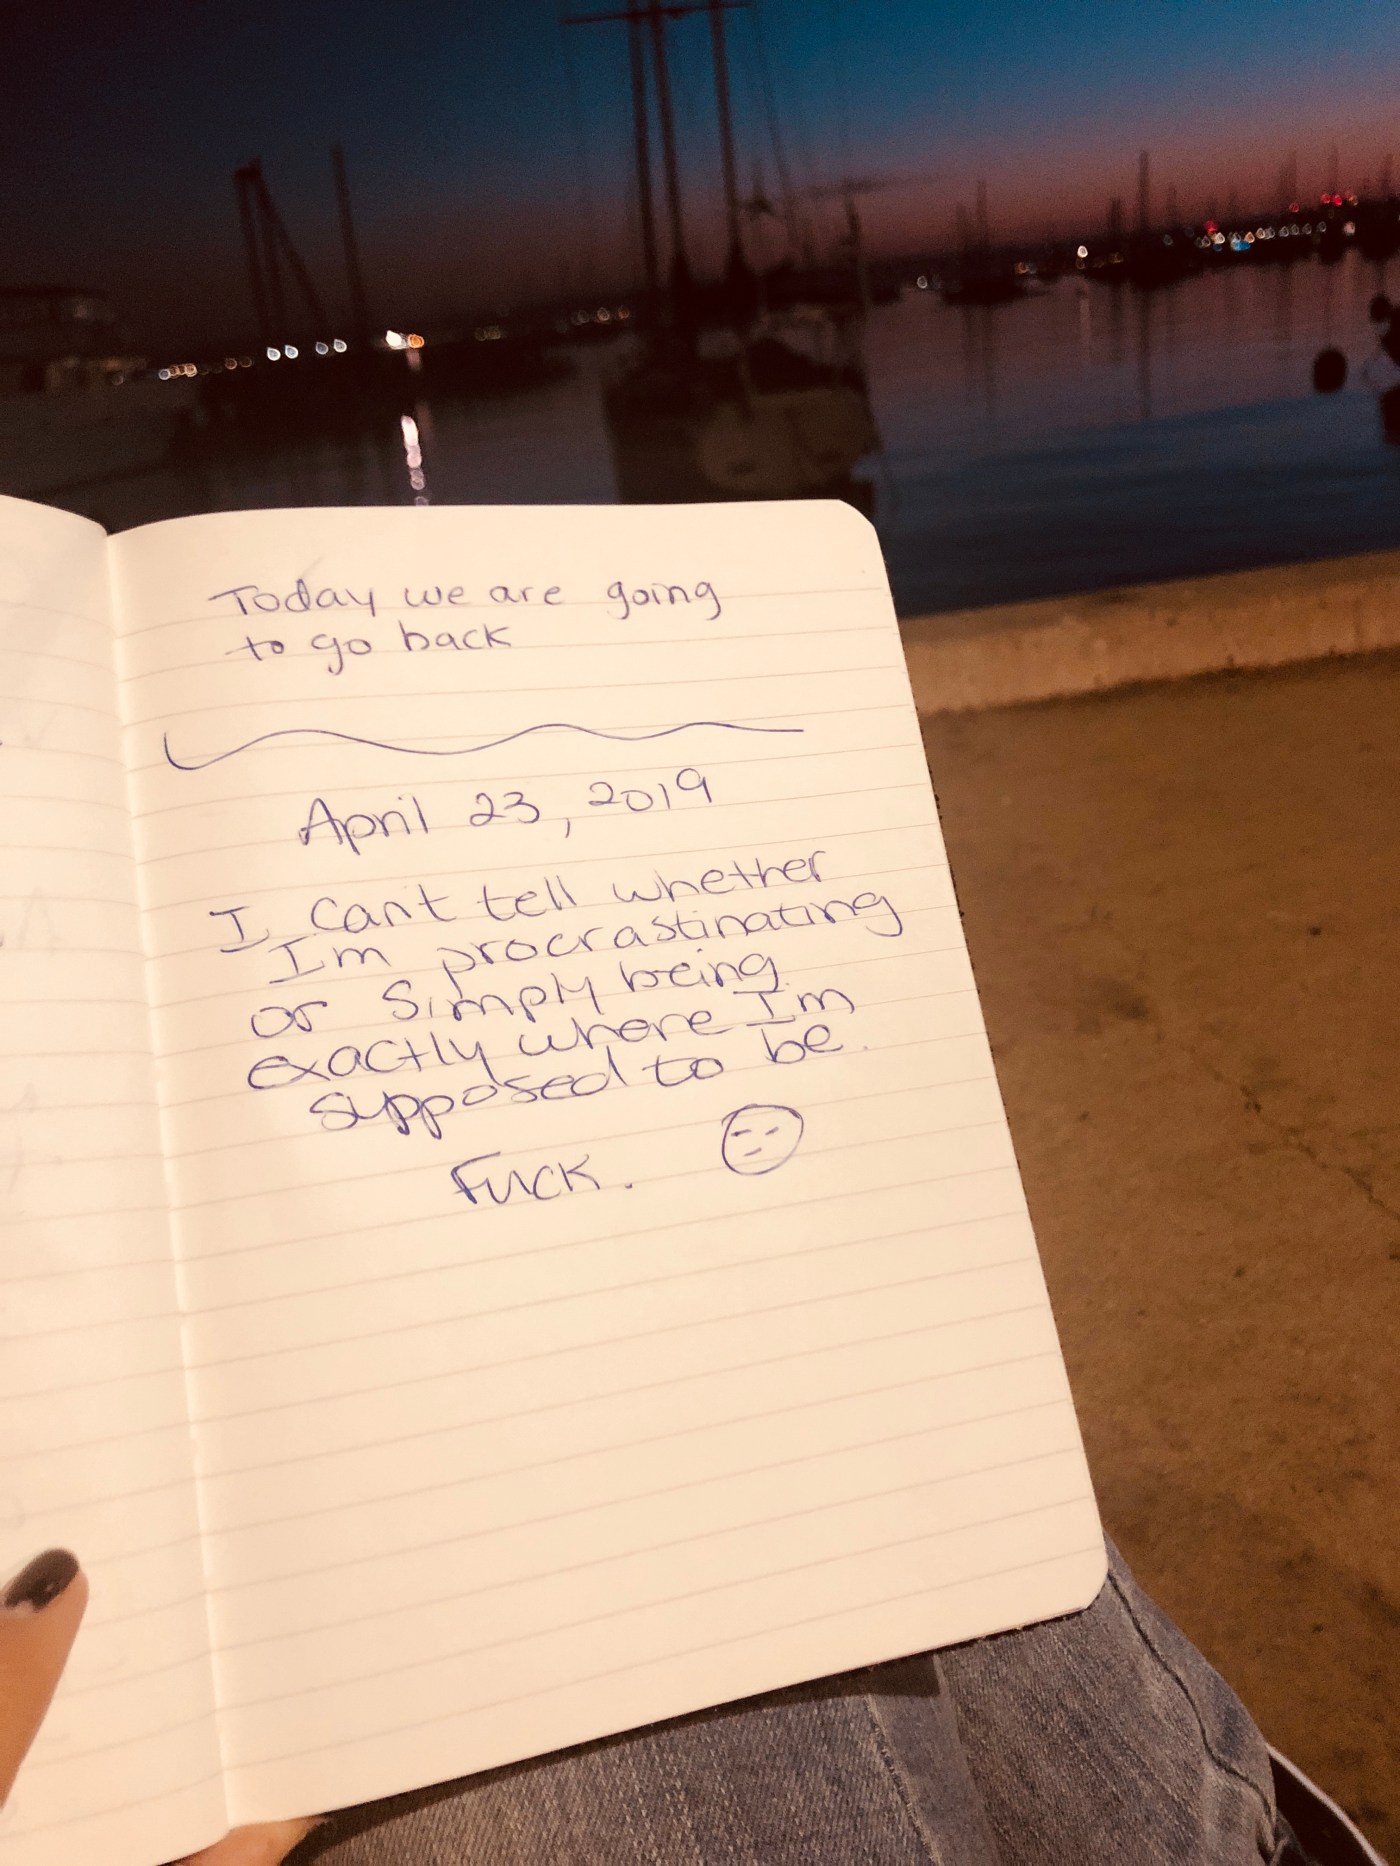 Today we are going
to go back
April 23, 2019
I can't tell whether
I'm procrastinating
or simply being
exactly where I'm
supposed to be.
Fuck.